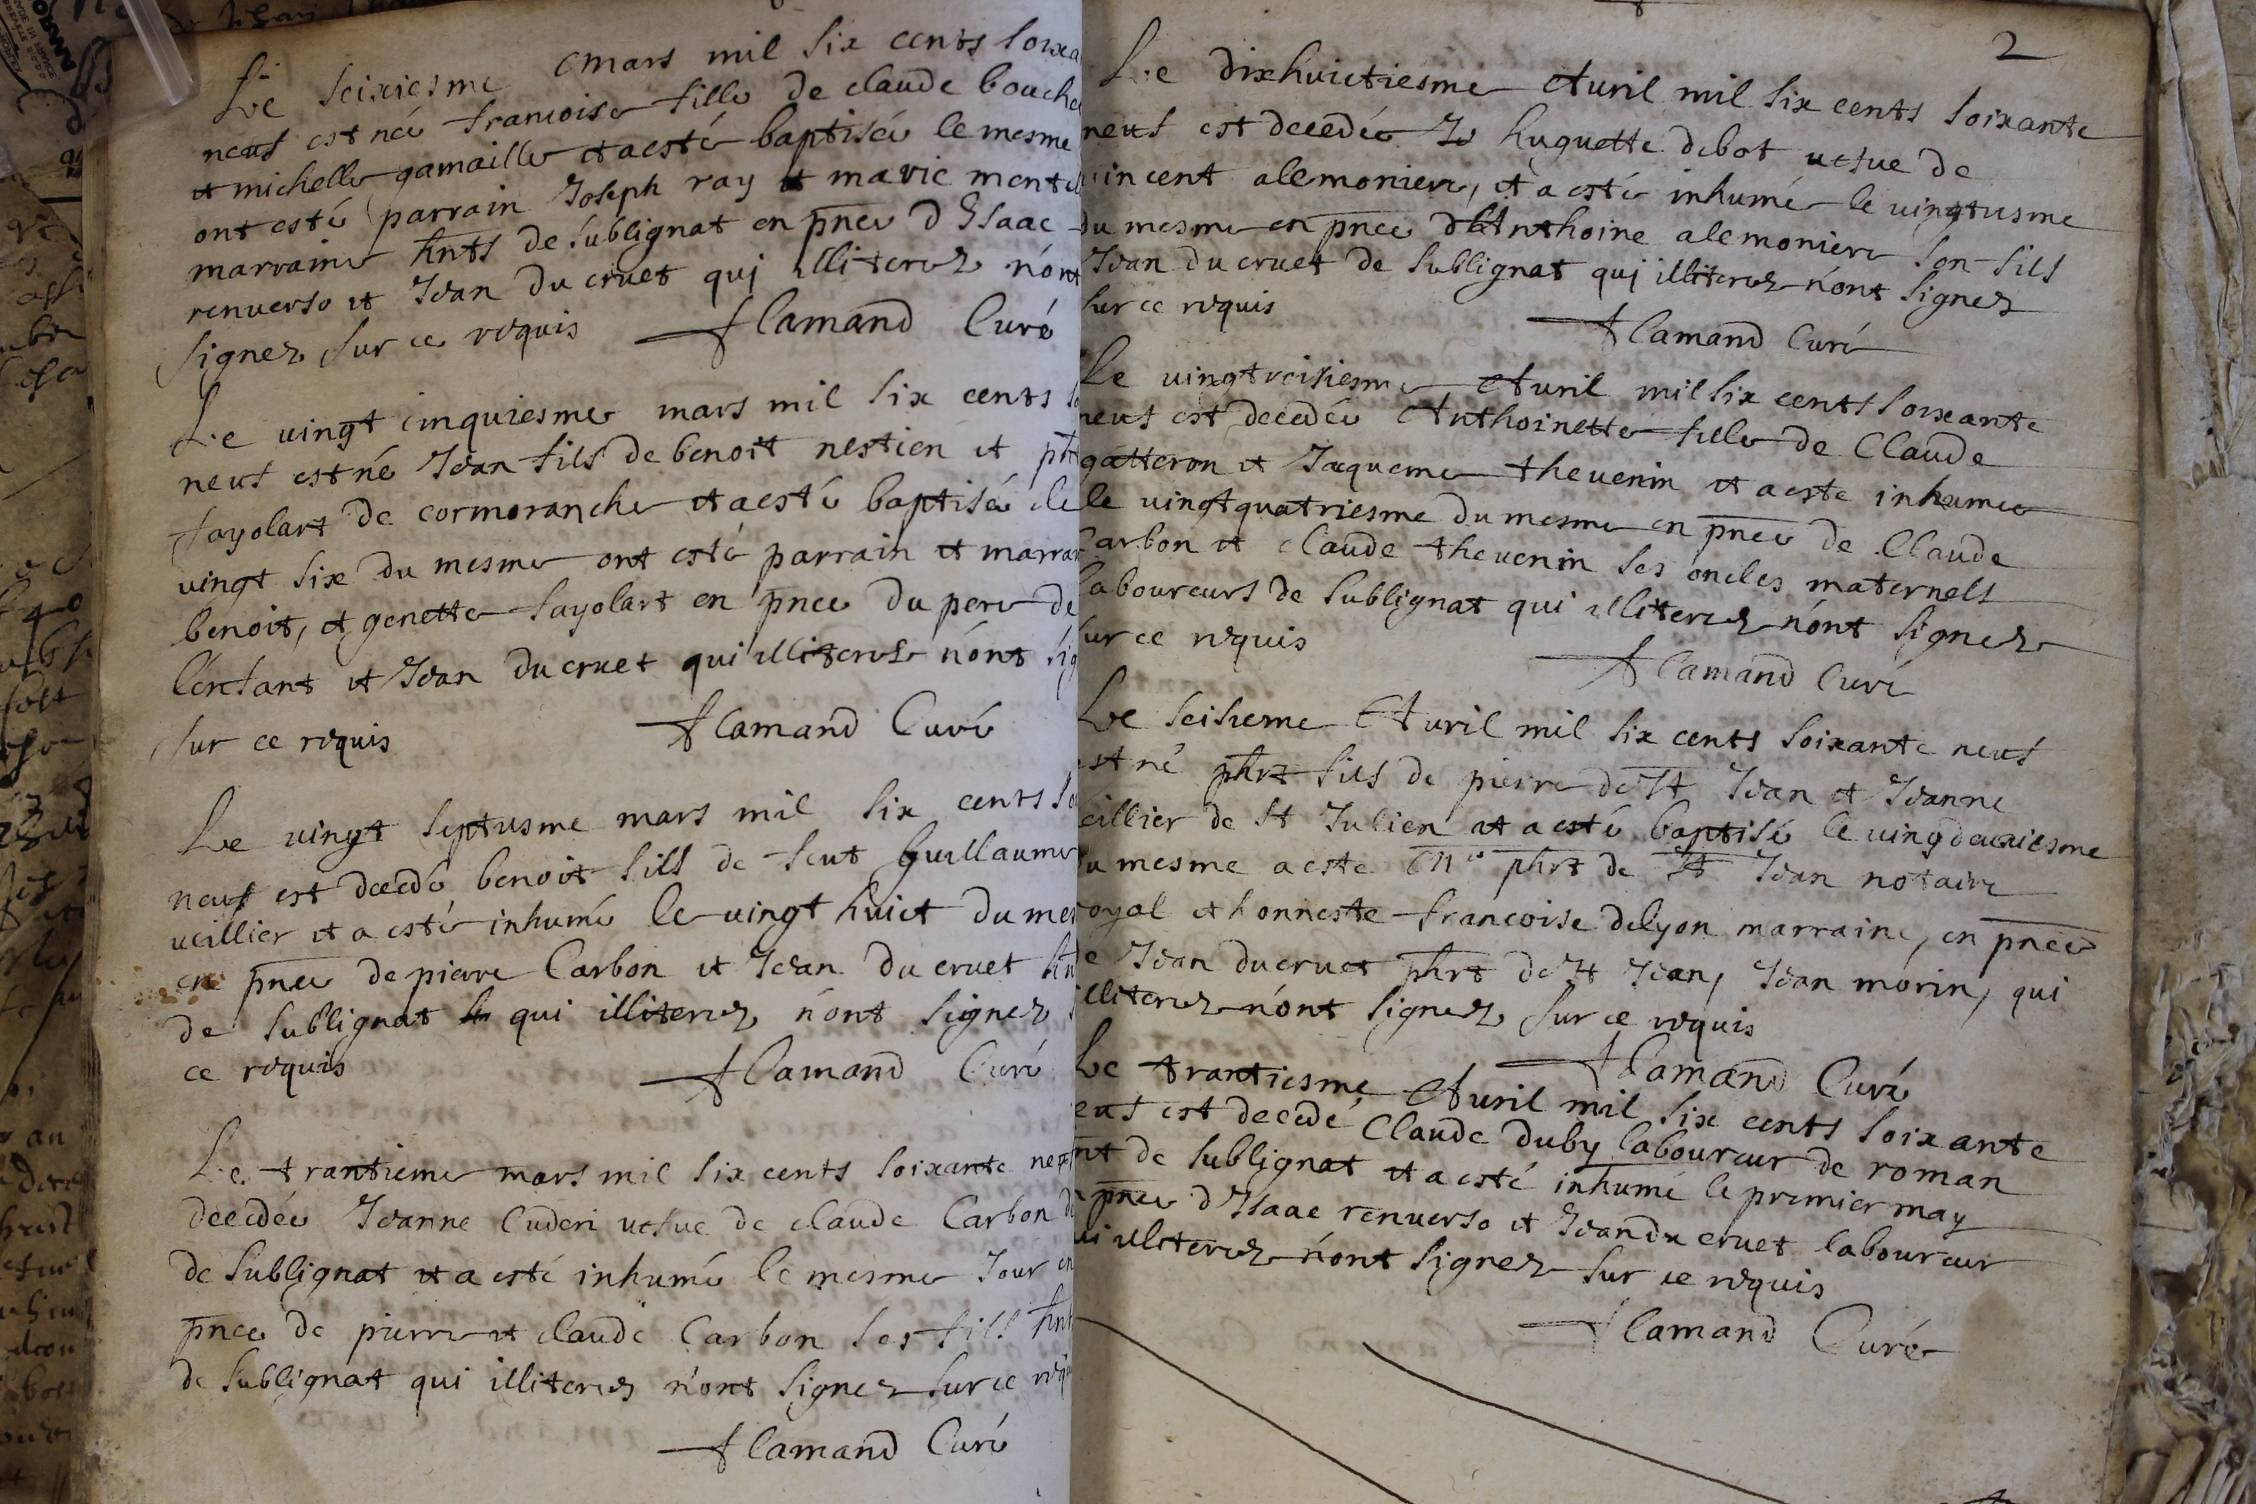 Le seiziesme mars mil six cents soixa
neuf est née francoise fille de claude bouche
et michelle gamaille et a esté baptisée le mesme
ont esté parrain Joseph ray et marie
marraine hnts de sublignat en pnce d Isaac
renverso et Jean du cruet qui illiterez n'ont
signez sur ce requis Alamand Curé
Le vingt cinquiesme mars mil six cents
neuf est né Jean fils de benoit nestien et
fayolart de cormoranche et a esté baptisé le
vingt six du mesme ont esté parrain et marrai
benoit, et genette fayolart en pnce du pere de
l'enfant et Jean du cruet qui illiterez n'ont sig
sur ce requis Alamand Curé
Le vingt septiesme mars mil six cents so
neuf est decedé benoit fils de feut guillaume
veillier et a esté inhumé le vingt huict du mes
en pnce de pierre Carbon et Jean du cruet
de sublignat qui illiterez n'ont signez
ce requis Alamand Curé
Le trantieme mars mil six cents soixante neuf
decedée Jeanne vefue de claude Carbon
de sublignat et a esté inhumé le mesme Jour en
pnce de pierre et claude Carbon ses fils
de sublignat qui illiterez n'ont signez sur ce
Alamand Curé
2
Le dixhuictiesme Avril mil six cents soixante
neuf est decedée huguette debot vefue de
vincent alemoniere, et a esté inhumé le vingtiesme
du mesme en pnce d'Anthoine alemoniere son fils
Jean du cruet de sublignat qui illiterez n'ont signez
sur ce requis
Alamand Curé
Le vingtroisiesme Avril mil six cents soixante
neuf est decedée Anthoinette fille de Claude
gatteron et Jaqueme thevenin et a este inhumee
le vingtquatriesme du mesme en pnce de Claude
Carbon et claude thevenin ses oncles maternels
laboureurs de sublignat qui illiterez n'ont signez
sur ce requis
Alamand Curé
Le seisieme Avril mil six cents soixante neuf
est né phrt fils de pierre de St Jean et Jeanne
eillier de St Julien et a esté baptisé le vingdeuxiesme
du mesme a este Me phrt de St Jean notaire
royal et honneste francoise delyon marraine, en pnce
de Jean du cruet phrt de St Jean, Jean morin, qui
illiterez n'ont signez sur ce requis
Alamand Curé
Le trantiesme Avril mil six cents soixante
neuf est decedé Claude duby laboureur de roman
de sublignat et a esté inhumé le premier may
pnce d'Isaac renverso et Jean du cruet laboureur
qui illiterez n'ont signez sur ce requis
Alamand Curé